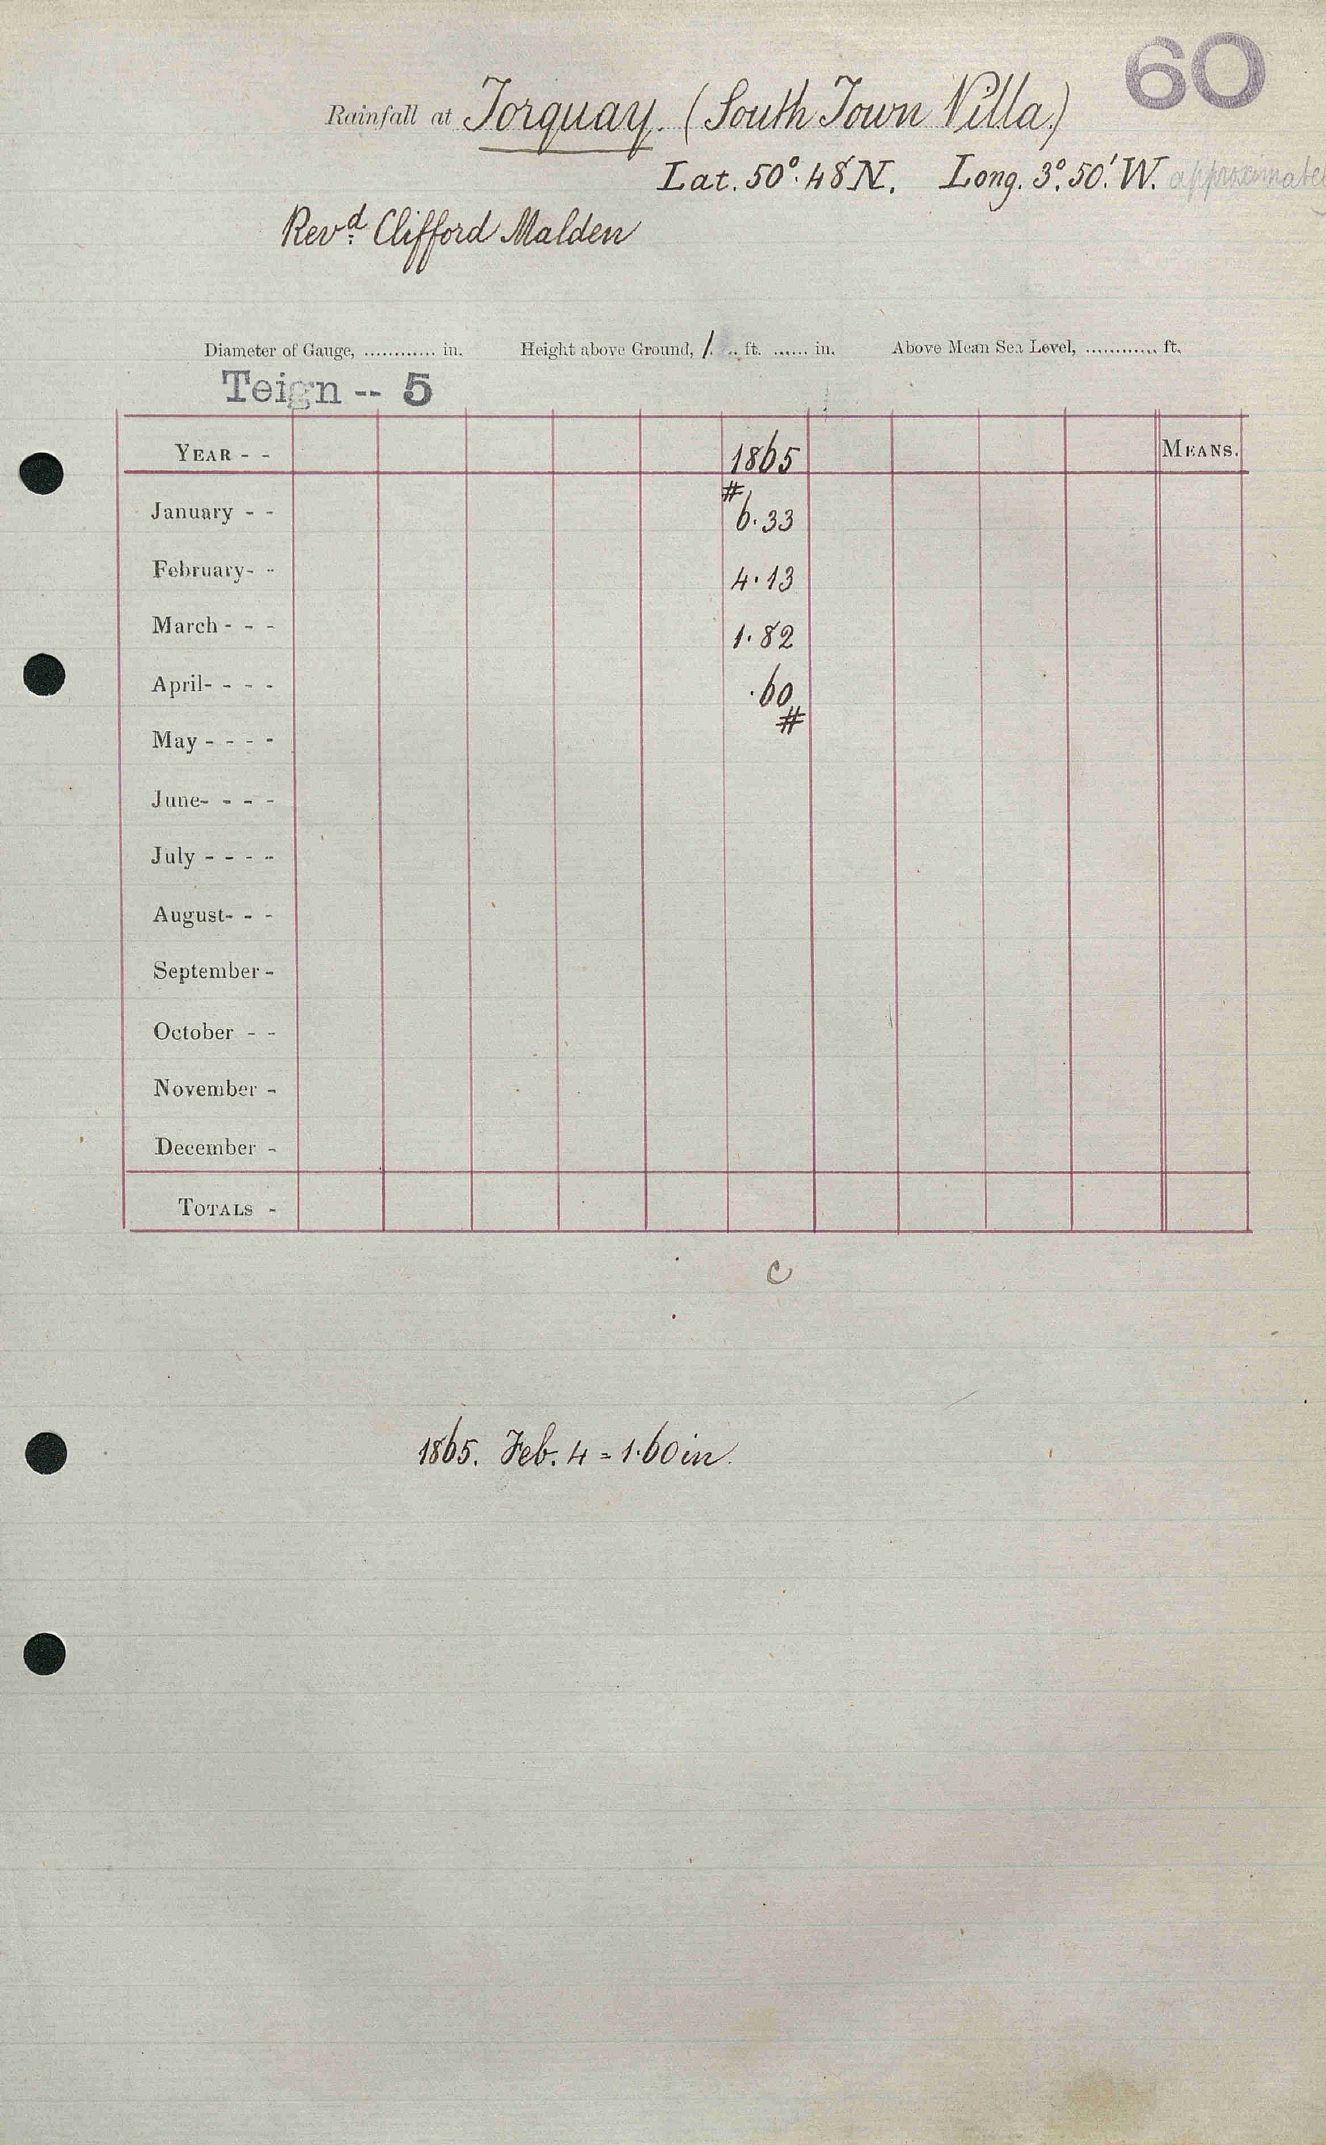 60
Rainfall at Torquay. (South Town Villa.)
Lat. 50°. 48' N. Long. 3°. 50.' W. approximately
Revd. Clifford Malden
Diameter of Gauge, ............ in. Height above Ground, 1. .. ft. ...... in. Above Mean Sea Level, ............ ft.
Teign -- 5
YEAR - - 1865 MEANS.
#
January - - 6.33
February- - 4.13
March - - - 1.82
April- - - - .60
#
May - - - -
June- - - -
July - - - -
August- - -
September -
October - -
November -
December -
TOTALS -
C
1865. Feb. 4 = 1.60 in.